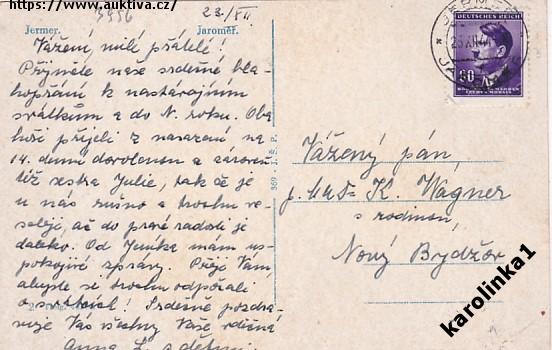 https://www.auktiva.cz/
3956
23./XII.
Jermer.
Jaroměř.
Vážení, milé přátelé!
Přijměte naše srdečné bla-
hopřání k nastávajícím
svátkům a do N. roku. Oba
hoši přijeli z nasazení na
14. denní dovolenou a zároveň
též sestra Julie, tak že je
u nás rušno a trochu ve-
seleji, ač do pravé radosti je
daleko. Od Jeníka mám us-
pokojivé zprávy. Přeji Vám
abyste se trochu odpočali
o svátcích! Srdečně pozdra-
vuje Vás všechny Vaše oddaná
Anna L. s dětmi.
369 J. Š. P.
DEUTSCHES REICH
60
BÖHMEN UND MÄHREN
ČECHY A MORAVA
Vážený pán,
p. MUDr K. Wágner
s rodinou,
Nový Bydžov
karolinka1